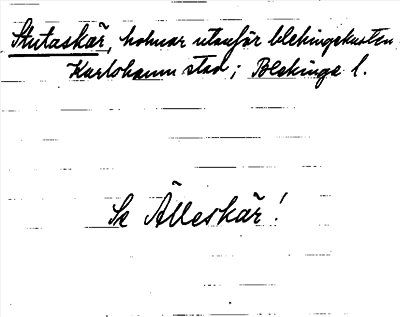 Stutaskär, holmar utanför blekingekusten
Karlshamn stad; Blekinge l.
Se Älleskär!